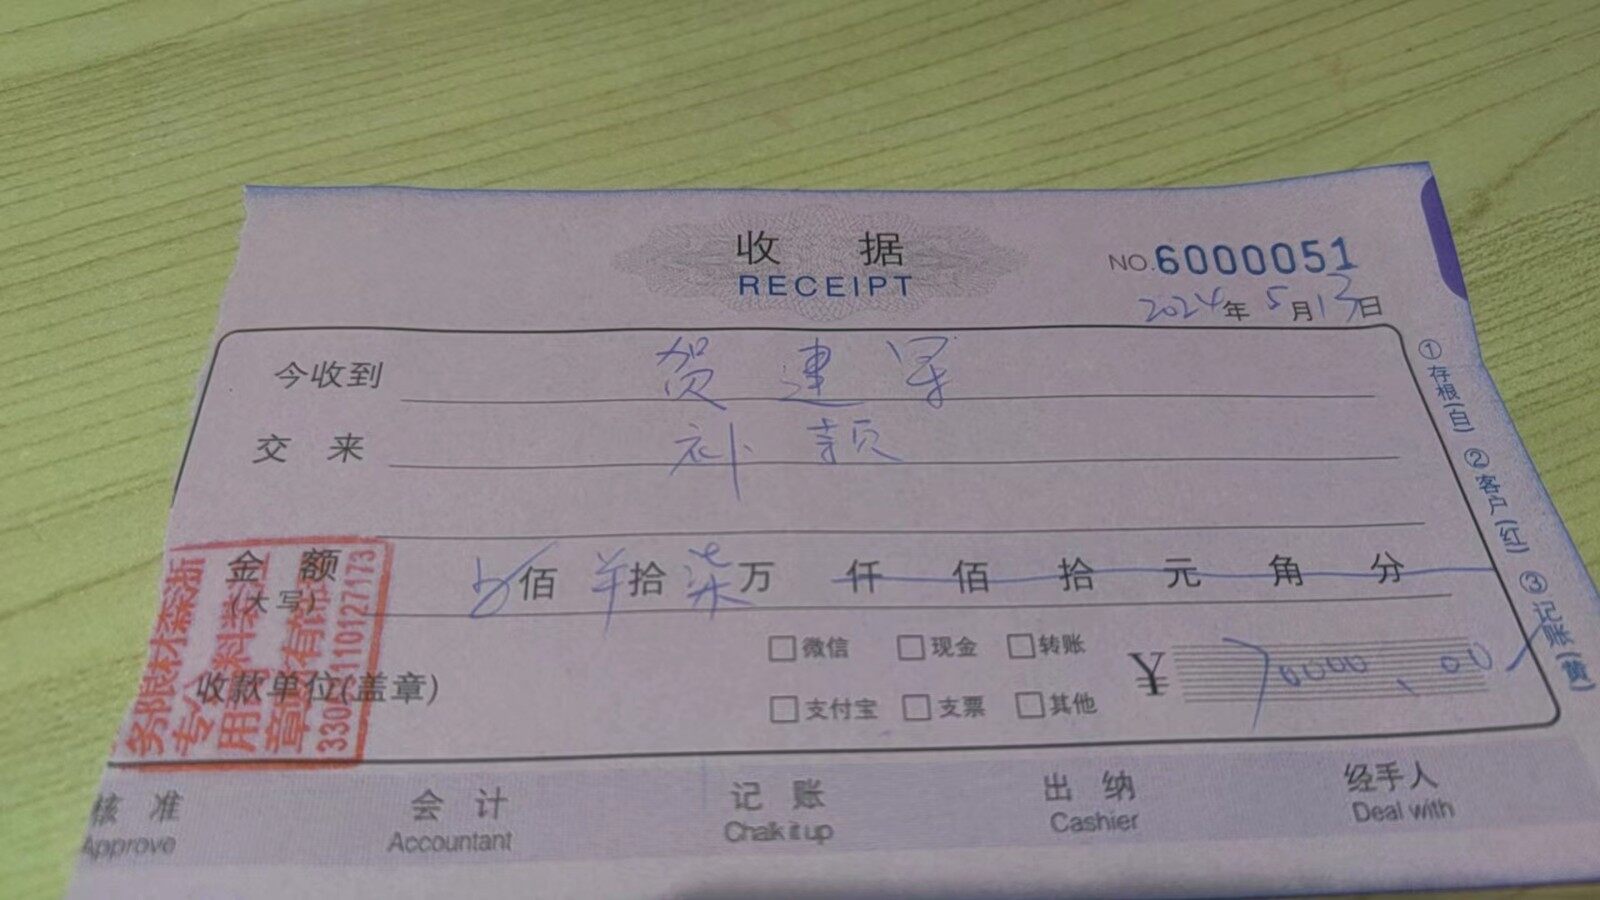 收 据
RECEIPT
NO.6000051
2024年5月13日
今收到 贺建军
交 来 补颏
金 额 佰 拾 柒 万 仟 佰 拾 元 角 分
(大写)
□微信 □现金 □转账
¥ 70000.00
收款单位(盖章)
□支付宝 □支票 □其他
①存根(白) ②客户(红) ③记账(黄)
专用
章
33051110127173
核 准 会 计 记 账 出 纳 经手人
Approve Accountant Chalk it up Cashier Deal with